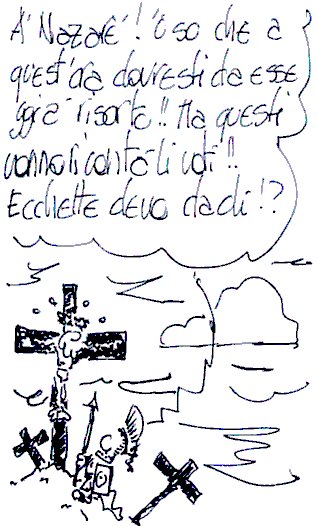 A' Nazarè! 'o so che a
quest'ora dovresti da esse
già risorto!! Ma questi
vonno ricontà li voti!!
Ecchette devo da di!?